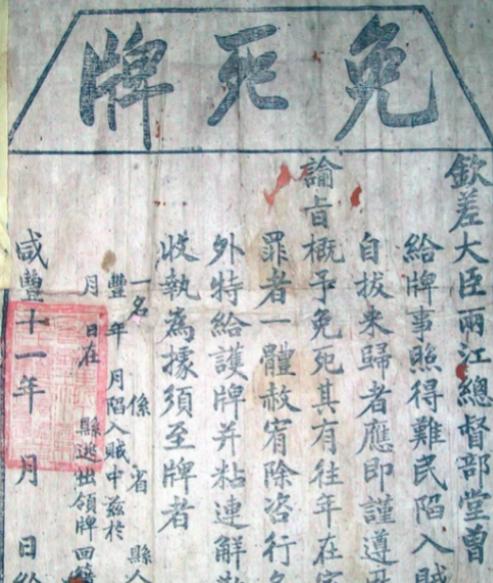 免死牌
欽差大臣兩江總督部堂曾
給牌事照得難民陷入賊
自拔来歸者應即謹遵
諭旨概予免死其有往年在
罪者一體赦宥除咨行
外特給護牌并粘連解
收執為據須至牌者
一名 係 省 縣
豐 年 月陷入賊中兹於
月 日在 縣逃出領牌回籍
咸豐十一年 月 日給